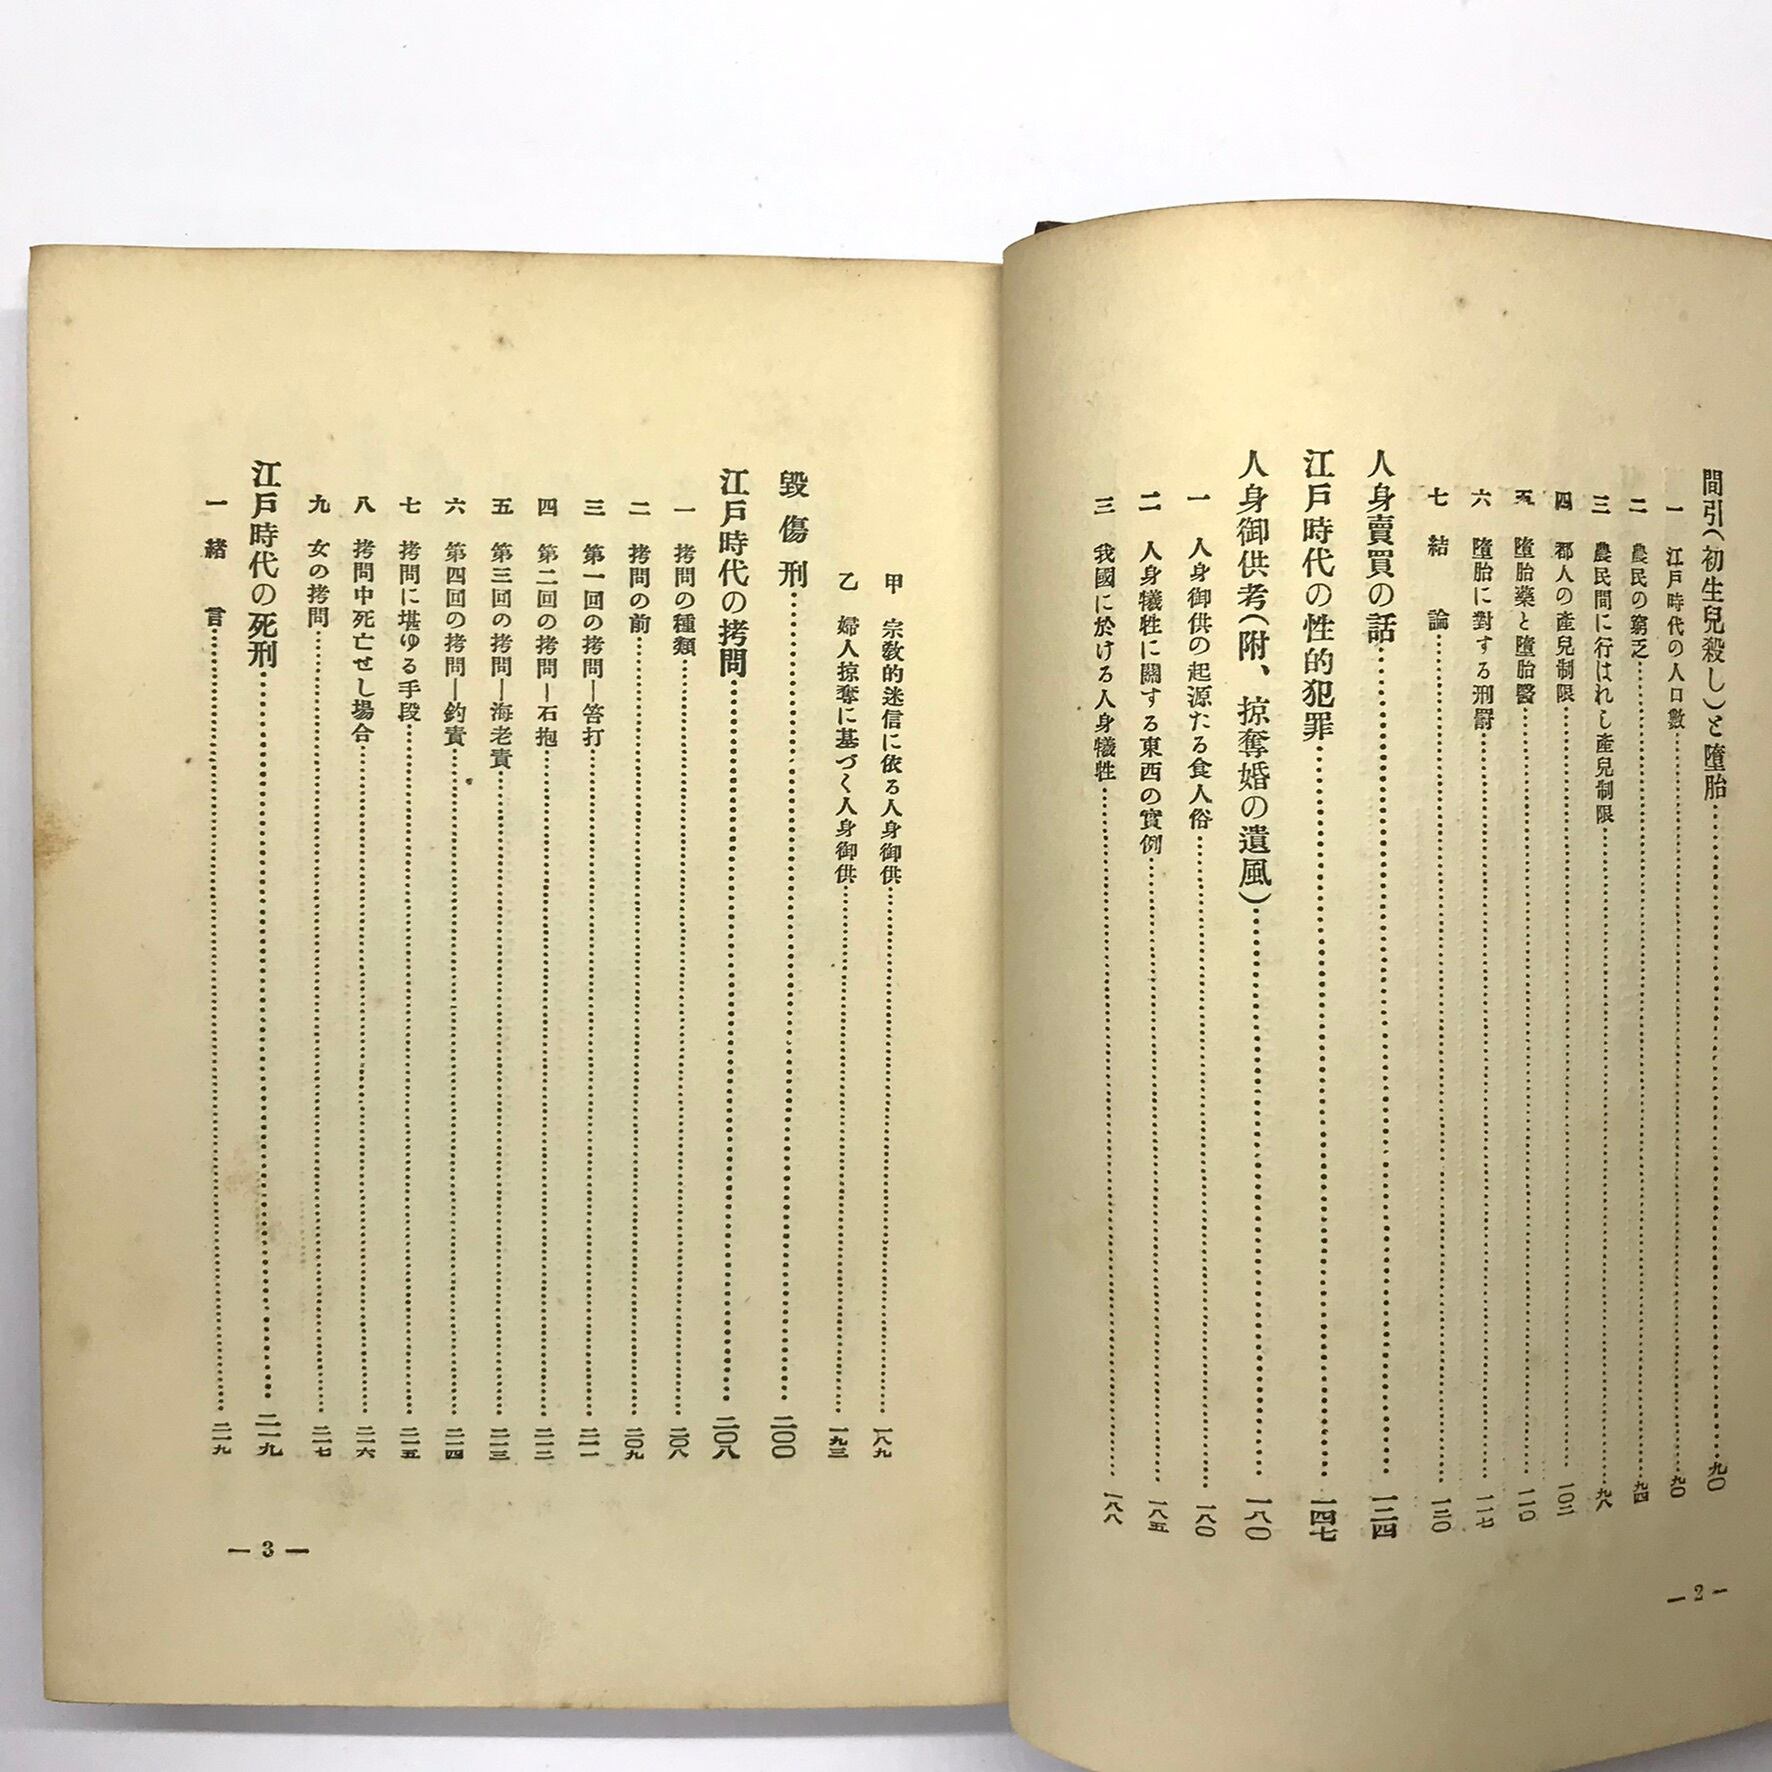 間引(初生兒殺し)と墮胎……九〇
一 江戸時代の人口數……九〇
二 農民の窮乏……九四
三 農民間に行はれし產兒制限……九八
四 都人の產兒制限……一〇二
五 墮胎藥と墮胎醫……一一〇
六 墮胎に對する刑罸……一一七
七 結論……一二〇
人身賣買の話……一二四
江戸時代の性的犯罪……一四七
人身御供考(附、掠奪婚の遺風)……一八〇
一 人身御供の起源たる食人俗……一八〇
二 人身犧牲に關する東西の實例……一八五
三 我國に於ける人身犧牲……一八八
— 2 —
甲 宗敎的迷信に依る人身御供……一八九
乙 婦人掠奪に基づく人身御供……一九三
毀傷刑……二〇〇
江戸時代の拷問……二〇八
一 拷問の種類……二〇八
二 拷問の前……二〇九
三 第一回の拷問—笞打……二一一
四 第二回の拷問—石抱……二一二
五 第三回の拷問—海老責……二一三
六 第四回の拷問—釣責……二一四
七 拷問に堪ゆる手段……二一五
八 拷問中死亡せし場合……二一六
九 女の拷問……二一七
江戸時代の死刑……二一九
一 緒言……二一九
— 3 —